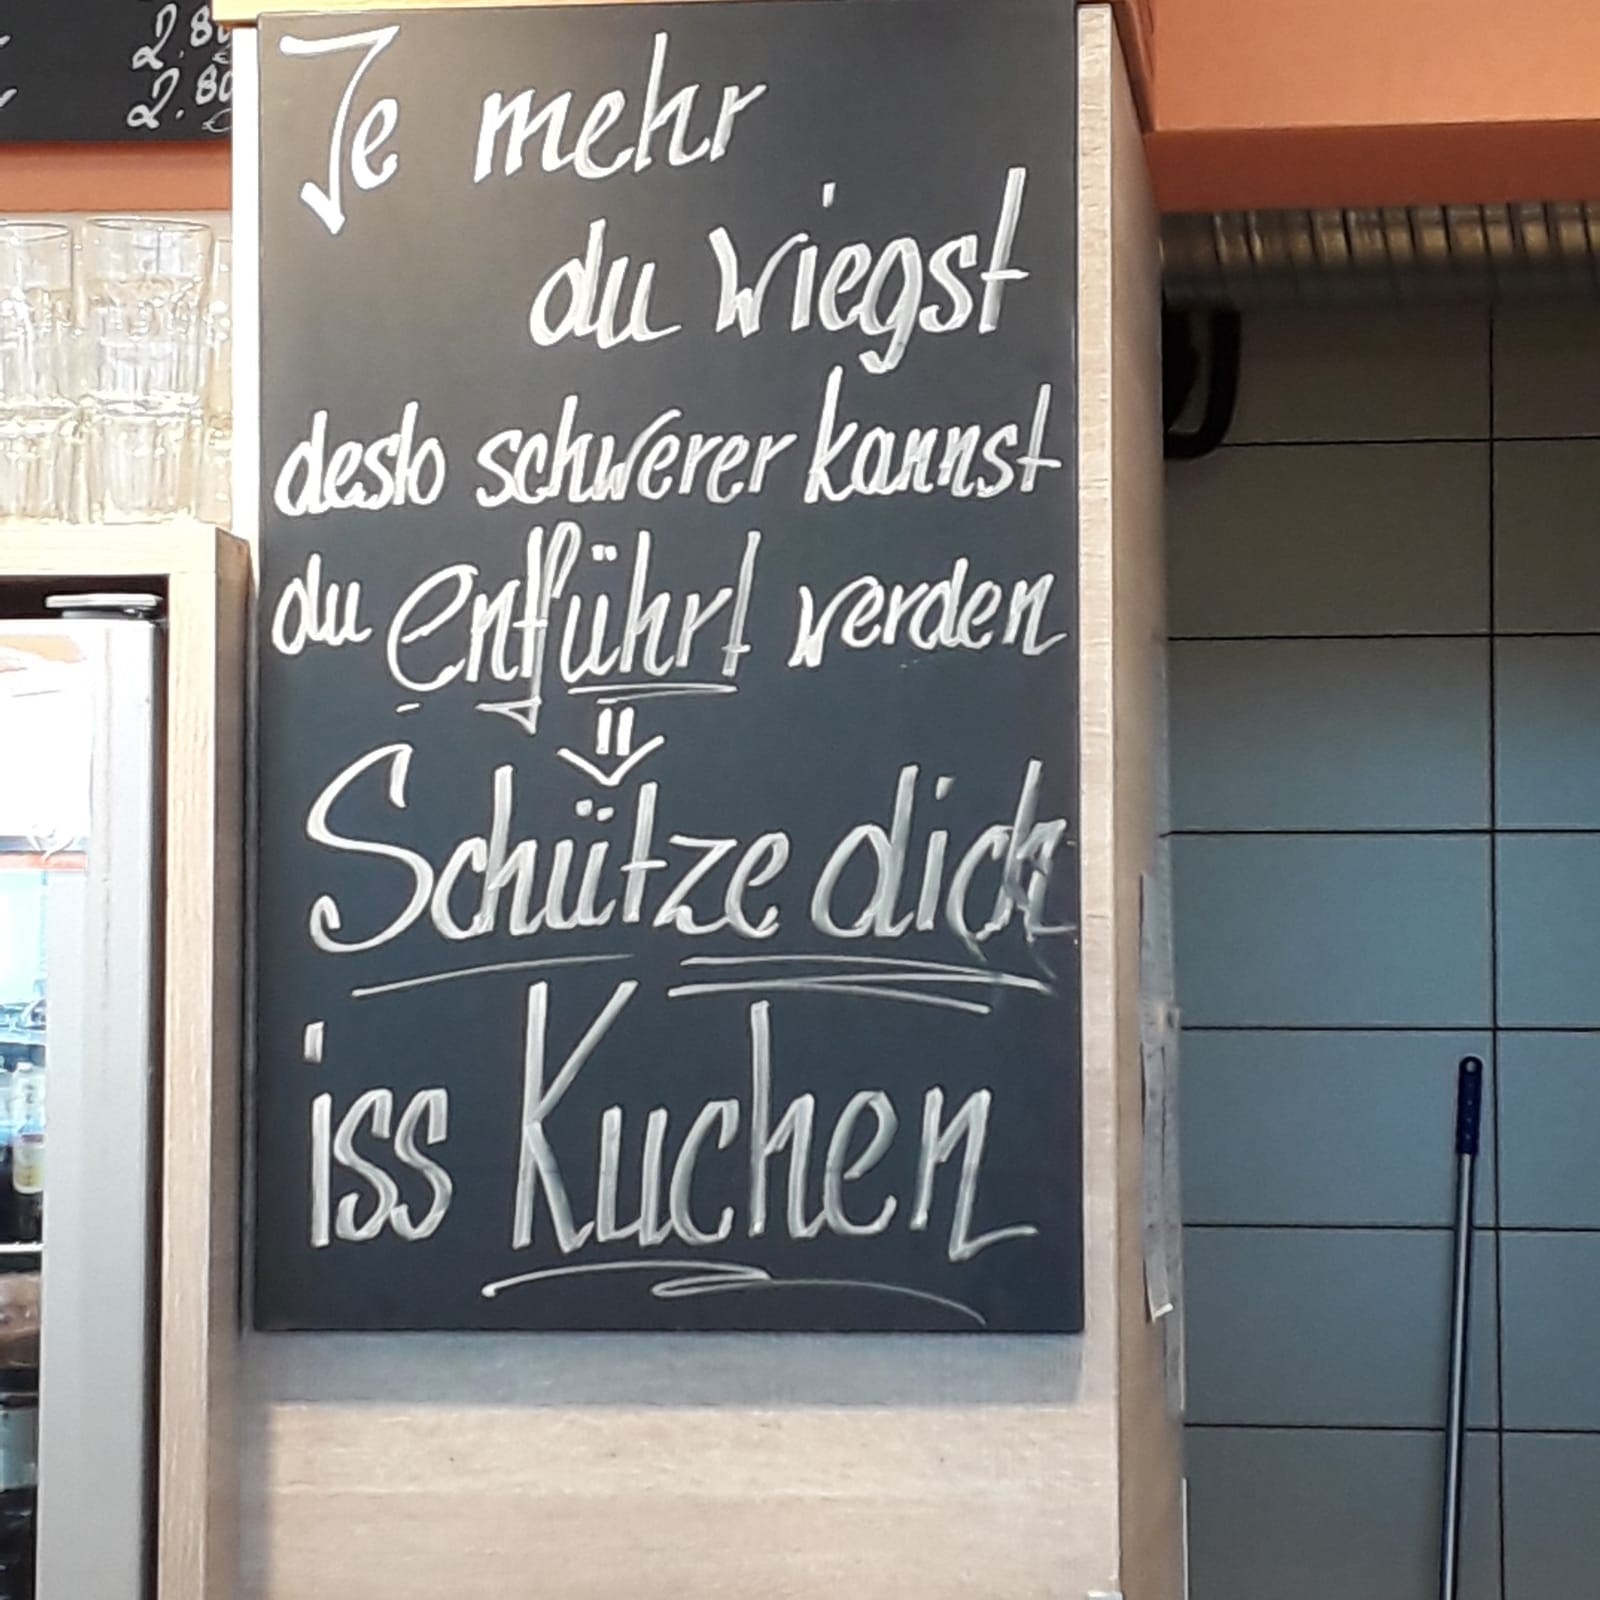 2.80
2.80
Je mehr
du wiegst
desto schwerer kannst
du entführt werden
Schütze dich
iss Kuchen